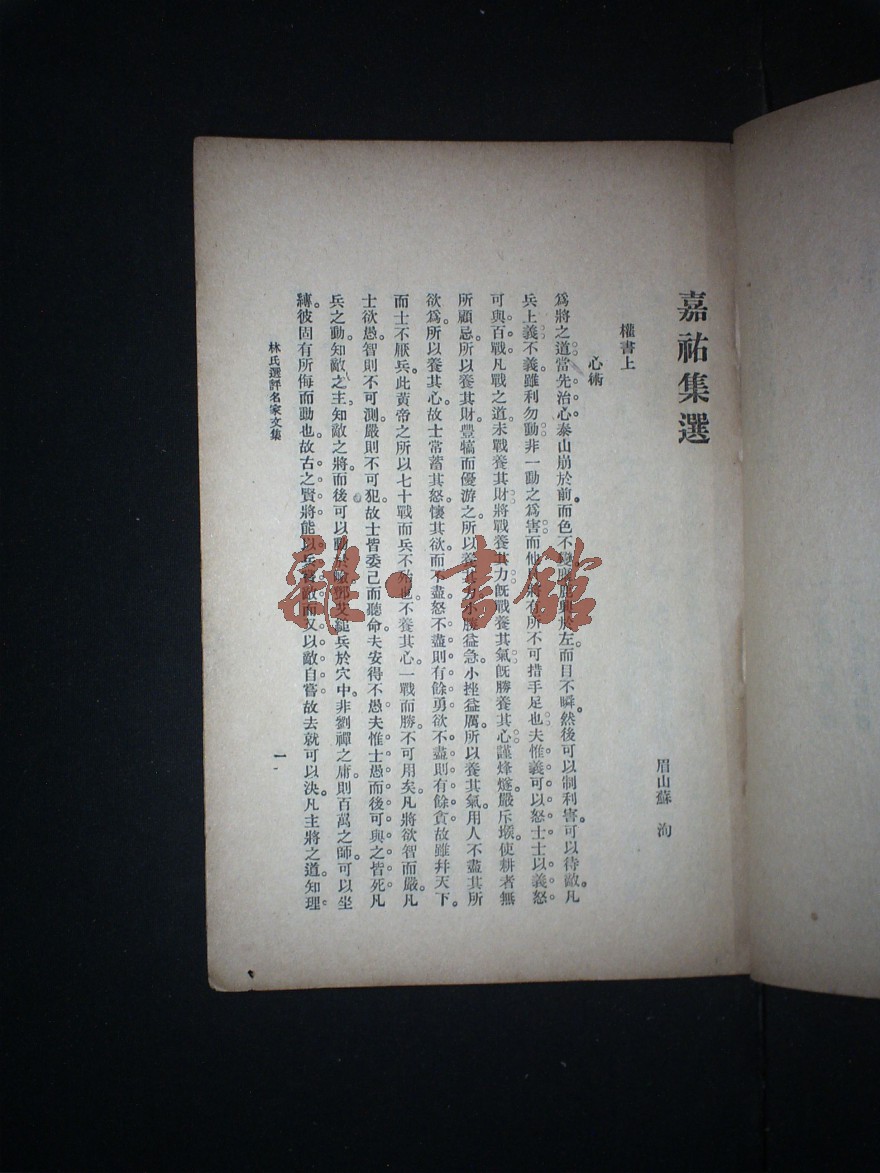 嘉祐集選
眉山蘇 洵
權書上
心術
爲將之道當先治心泰山崩於前而色不變麋鹿興於左而目不瞬。然後可以制利害可以待敵。凡
兵上義不義雖利勿動非一動之爲害而他日將有所不可措手足也夫惟義可以怒士士以義怒
可與百戰凡戰之道未戰養其財將戰養其力既戰養其氣既勝養其心謹烽燧嚴斥堠使耕者無
所顧忌所以養其財。豐犒而優游之所以養其力小勝益急。小挫益厲。所以養其氣。用人不盡其所
欲爲所以養其心。故士常蓄其怒懷其欲而不盡怒不盡則有餘勇欲不盡則有餘貪故雖幷天下。
而士不厭兵。此黃帝之所以七十戰而兵不殆也不養其心。一戰而勝。不可用矣。凡將欲智而嚴。凡
士欲愚。智則不可測。嚴則不可犯。故士皆委己而聽命。夫安得不愚。夫惟士愚而後可與之皆死凡
兵之動。知敵之主。知敵之將。而後可以動於險。鄧艾縋兵於穴中。非劉禪之庸。則百萬之師。可以坐
縛。彼固有所侮而動也。故古之賢將能以兵嘗敵而又以敵自嘗故去就可以決。凡主將之道。知理
林氏選評名家文集
一
雜·書館